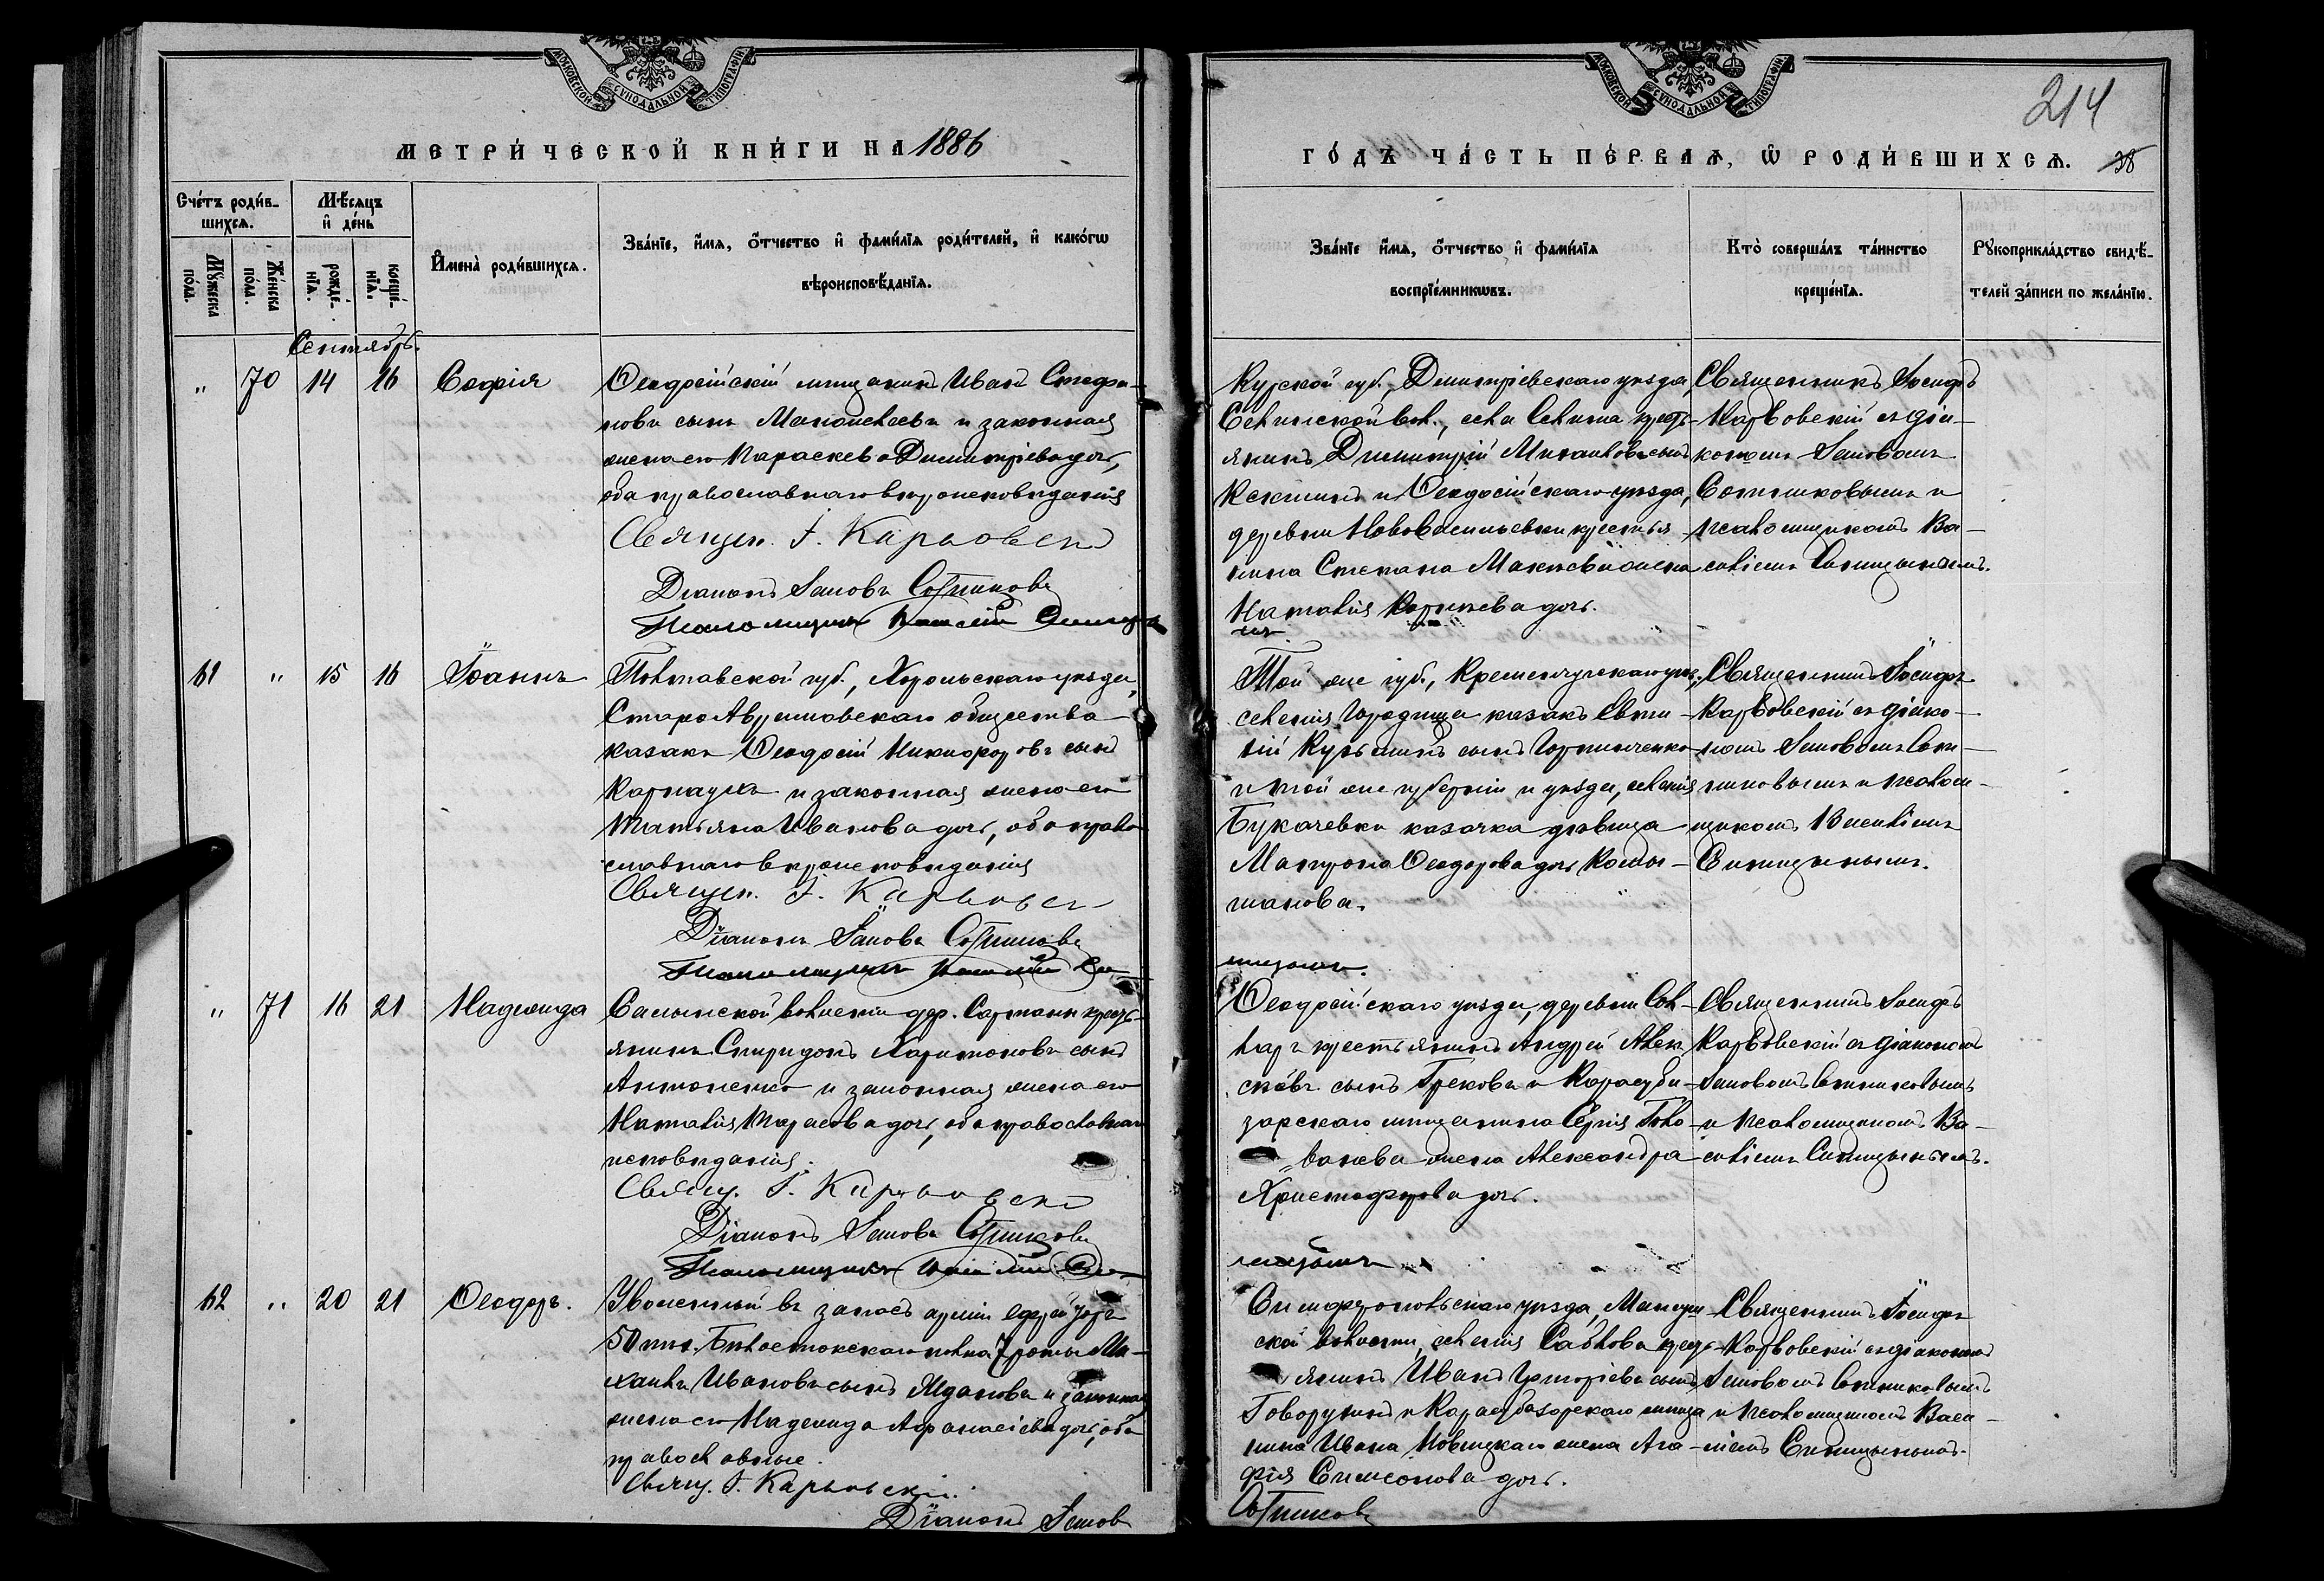 МОСКОВСКОЙ СУНОДАЛЬНОЙ ТИПОГРАФІИ
МЕТРИ́ЧЕСКОЙ КНИ́ГИ НА 1886
Сче́тъ роди́в-
шихсѧ.
Мѣ́сѧцъ
и҆ де́нь
Мꙋ́жеска по́ла.
Же́нска по́ла.
рожде́-
нїѧ.
креще́-
нїѧ.
И҆мена̀ роди́вшихсѧ.
Зва́нїе, и҆́мѧ, ѻ҆́тчество и҆ фами́лїѧ роди́телей, и҆ како́гѡ
вѣроисповѣ́данїѧ.
Сентябрь.
" 70 14 16 Софія
Ѳеодосійскій мѣщанинъ Иванъ Стефа-
новъ сынъ и законная
жена его Параскева Димитріева дочь,
оба православнаго вѣроисповѣданія
Священ. І. Карповскій
Діаконъ Іаковъ Сотниковъ
Псаломщикъ Василій
61 " 15 16 Іоаннъ
Полтавской губ., Хорольскаго уѣзда,
Старо общества
казакъ Ѳеодосій Никифоровъ сынъ
Карнаухъ и законная жена его
Татьяна Иванова дочь, оба право-
славнаго вѣроисповѣданія
Священ. І. Карповскій
Діаконъ Іаковъ Сотниковъ
Псаломщикъ Василій
" 71 16 21 Надежда
Салынской волости дер. Сартаны кресть-
янинъ Спиридонъ Харитоновъ сынъ
Антоненко и законная жена его
Наталія Тарасова дочь, оба православнаго
исповѣданія.
Свящ. І. Карповскій
Діаконъ Іаковъ Сотниковъ
Псаломщикъ Василій
62 " 20 21 Ѳеодоръ.
Уволенный въ запасъ арміи
50 пѣх. Бѣлостокскаго полка 7 роты Ми-
хаилъ Ивановъ сынъ Ждановъ и законная
жена его Надежда Аѳанасіева дочь, оба
православные.
Свящ. І. Карповскій.
Діаконъ Іаковъ
МОСКОВСКОЙ СУНОДАЛЬНОЙ ТИПОГРАФІИ
214
ГО́ДЪ ЧА́СТЬ ПЕ́РВАѦ, Ѡ҆ РОДИ́ВШИХСѦ. 38
Зва́нїе и҆́мѧ, ѻ҆́тчество и҆ фами́лїѧ
воспрїе́мникѡвъ.
Кто̀ соверша́лъ та́инство
креще́нїѧ.
Рꙋкоприкла́дство свидѣ́-
телей за́писи по жела́нїю.
Курской губ., Димитріевскаго уѣзда,
Селинской вол., села Селина кресть-
янинъ Димитрій Михаиловъ сынъ
и Ѳеодосійскаго уѣзда,
деревни Нововасильевки крестья-
нина Степана жена
Наталія Корнѣева дочь.
Священникъ Іосифъ
Карповскій съ діа-
кономъ Іаковомъ
Сотниковымъ и
псаломщикомъ Ва-
силіемъ Синицынымъ.
Той же губ., Кременчугскаго уѣз.,
селенія Городища казакъ Евти-
хій Кузьминъ сынъ
и той же губерніи и уѣзда, селенія
Букачевки казачка дѣвица
Матрона Ѳеодорова дочь Колы-
шанова.
Священникъ Іосифъ
Карповскій съ діако-
номъ Іаковомъ Сот-
никовымъ и псалом-
щикомъ Василіемъ
Синицынымъ.
Ѳеодосійскаго уѣзда, деревни Сол-
таръ крестьянинъ Андрей Алек-
сѣевъ сынъ Грековъ и Карасуба-
зарскаго мѣщанина Сергія Голо-
ванева жена Александра
Христофорова дочь.
Священникъ Іосифъ
Карповскій съ діакономъ
Іаковомъ Сотниковымъ
и псаломщикомъ Ва-
силіемъ Синицынымъ.
Симферопольскаго уѣзда, Мангуш-
ской волости, селенія Саблова кресть-
янинъ Иванъ Григоріевъ сынъ
Говорунъ и Карасубазарскаго мѣща-
нина Ивана Новицкаго жена Ага-
фія Симеонова дочь.
Священникъ Іосифъ
Карповскій съ діакономъ
Іаковомъ Сотниковымъ
и псаломщикомъ Васи-
ліемъ Синицынымъ.
Сотниковъ